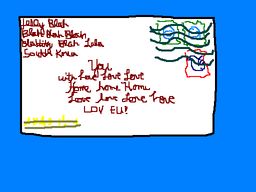 Lelly Blah
Blah Blah Blah,
Blabbity Blah Lala
South Korea
You
with Love Love Love
Home Home Home
Love Love Love Love
LUV EU!